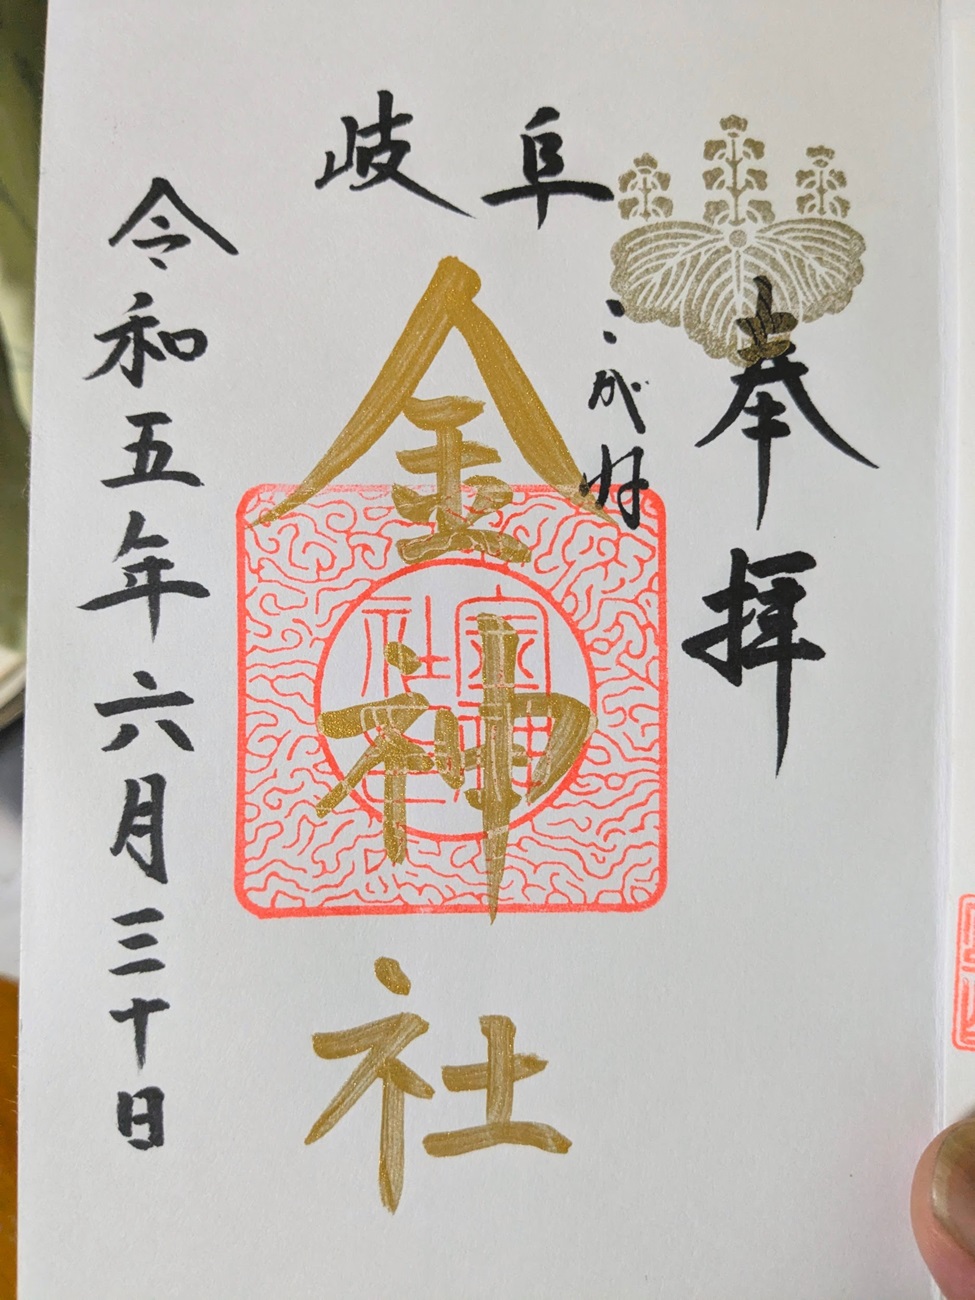 奉拝
岐阜
こがね
金神社
令和五年六月三十日